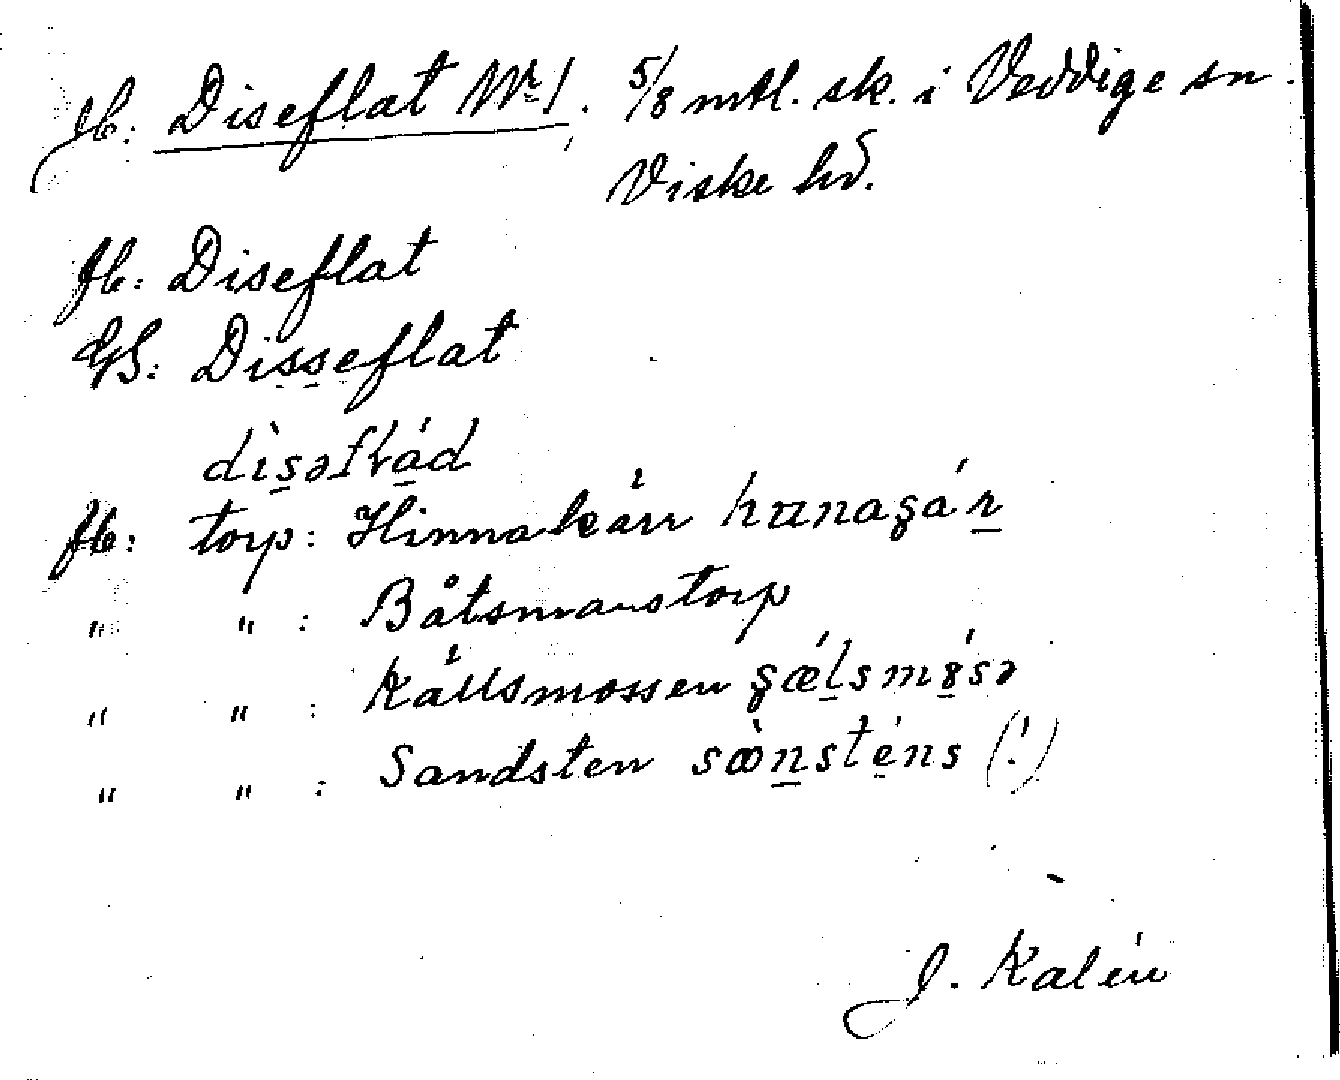 Jb: Diseflat Nr 1. 5/8 mtl. sk. i Veddige sn.
Viske hd.
Jb: Diseflat
GS: Disseflat
dìsəflád
Jb: torp: Hinnakärr
" " : Båtsmanstorp
" " : Källsmossen
" " : Sandsten sànsténs (!)
J. Kalén